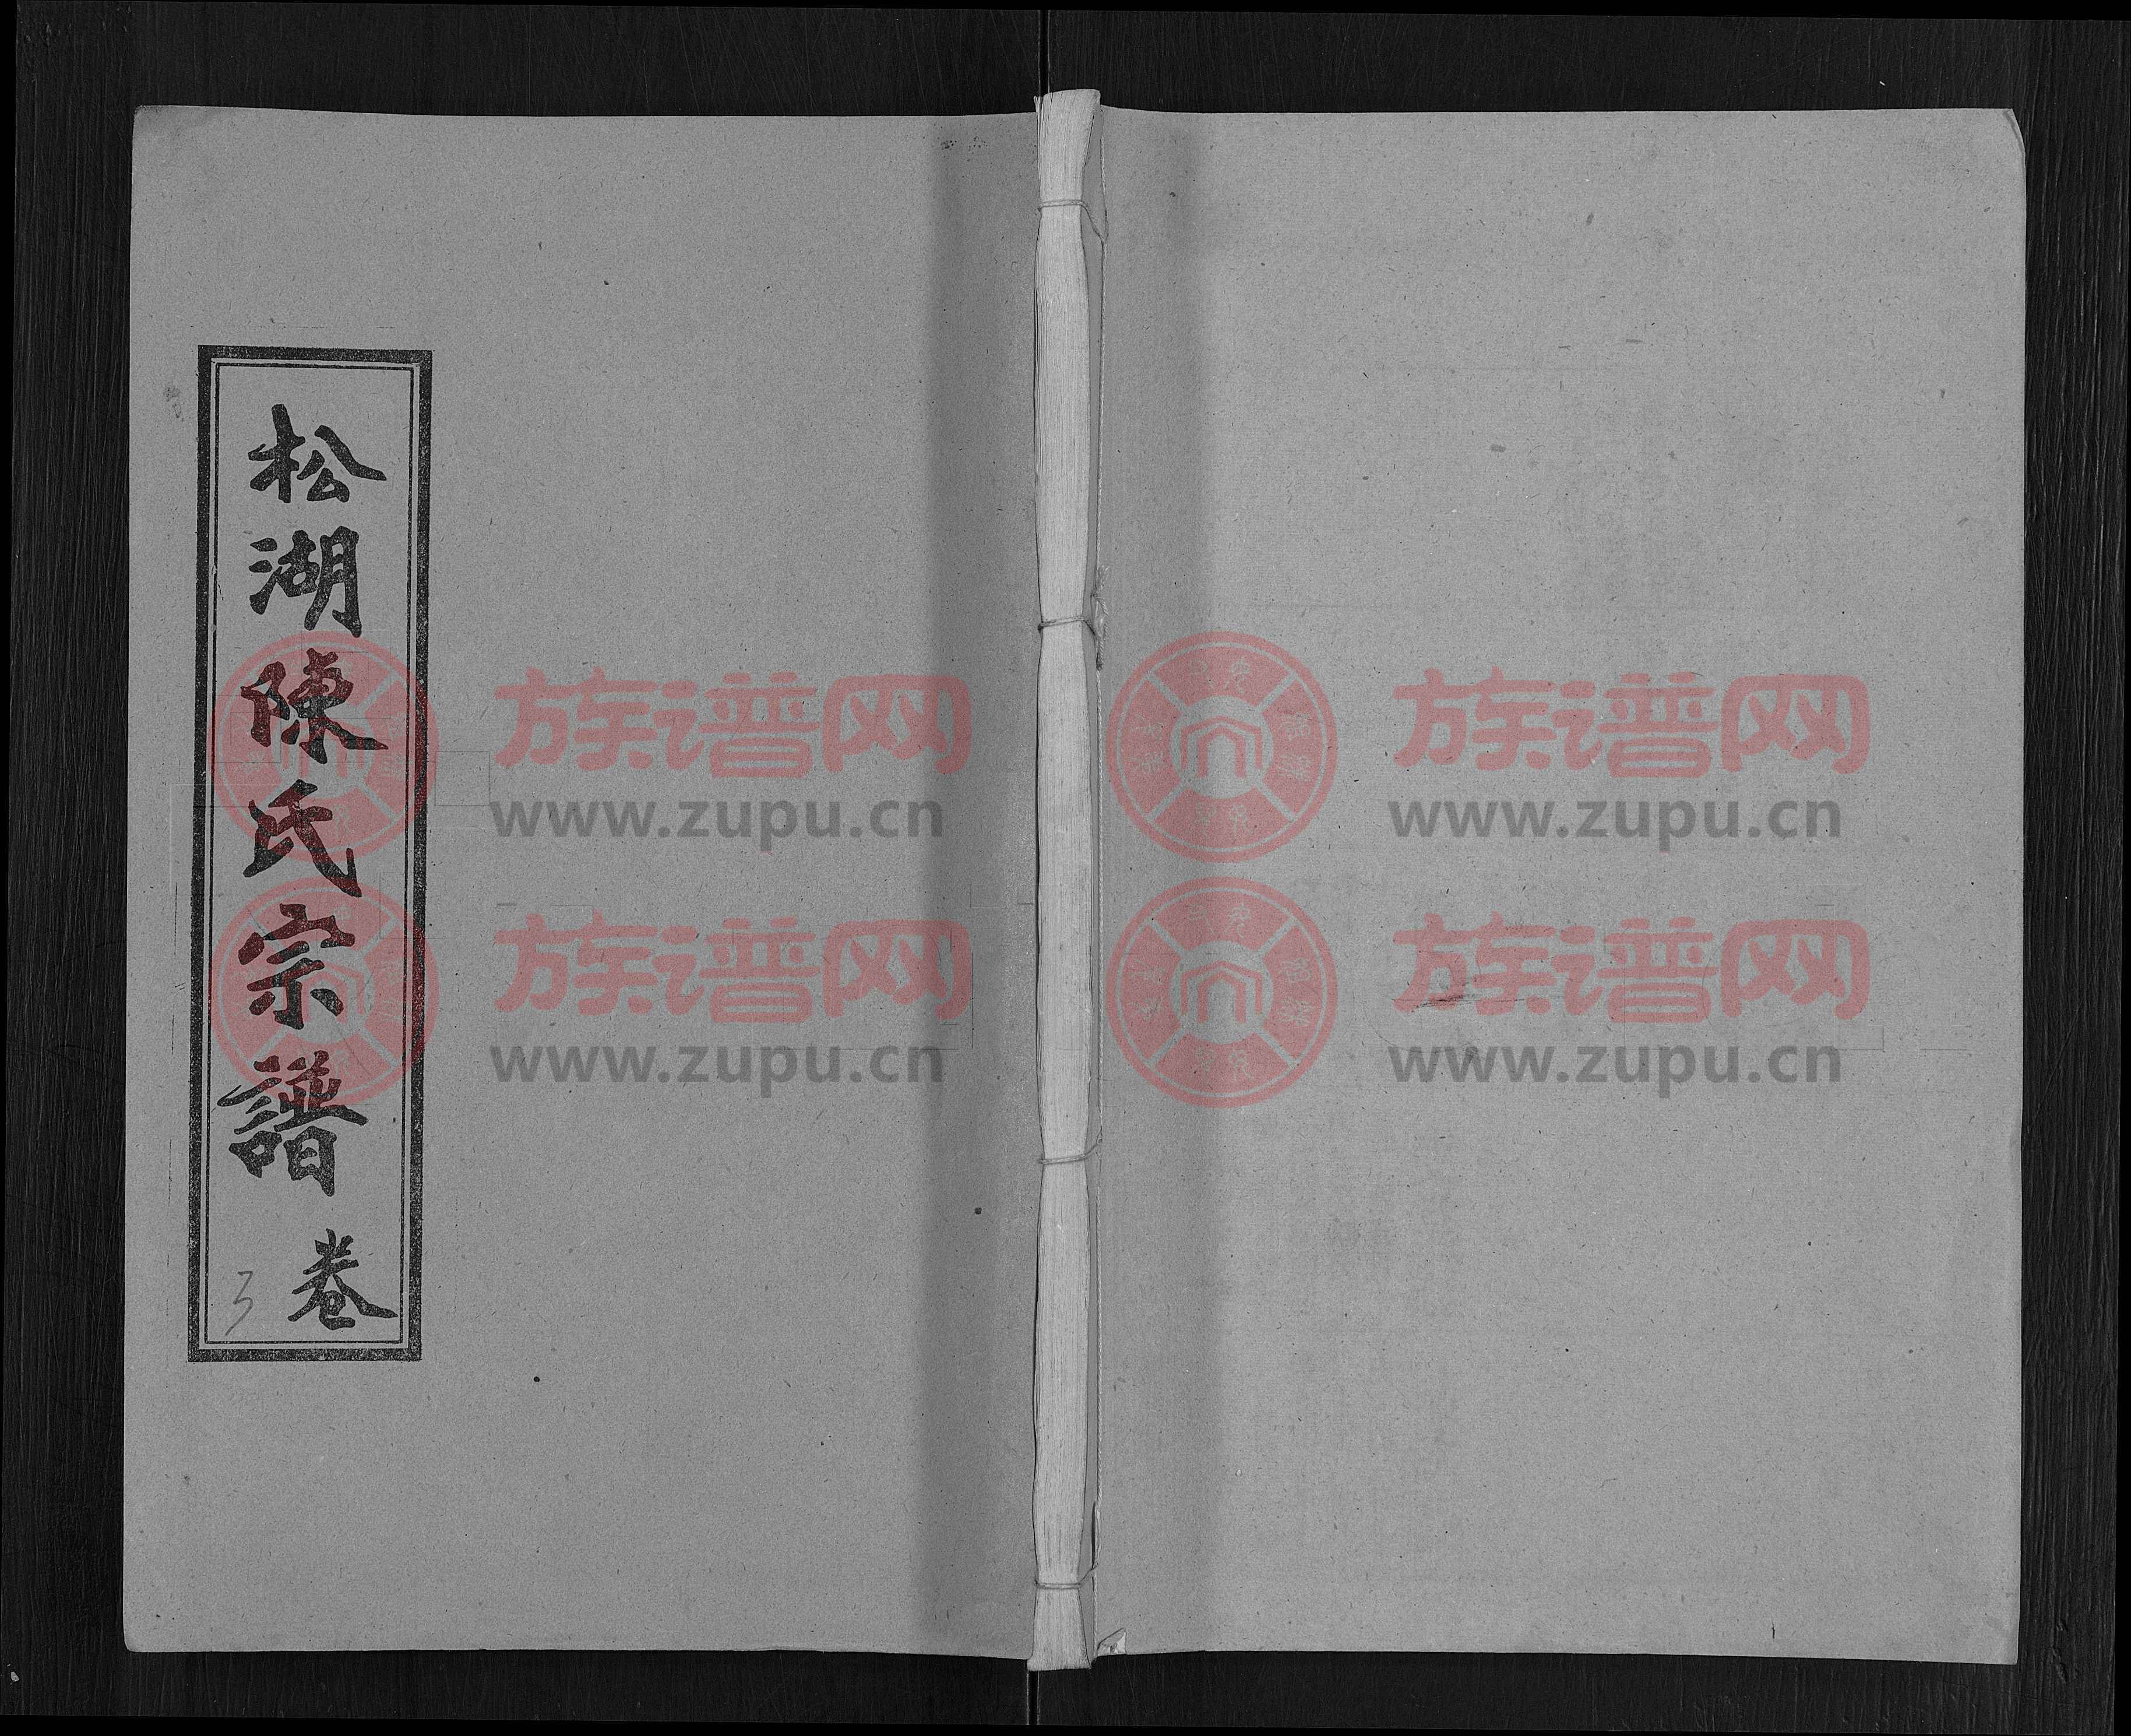 松湖陳氏宗譜 卷
3
族谱网
www.zupu.cn
族谱网
www.zupu.cn
族谱网
www.zupu.cn
族谱网
www.zupu.cn